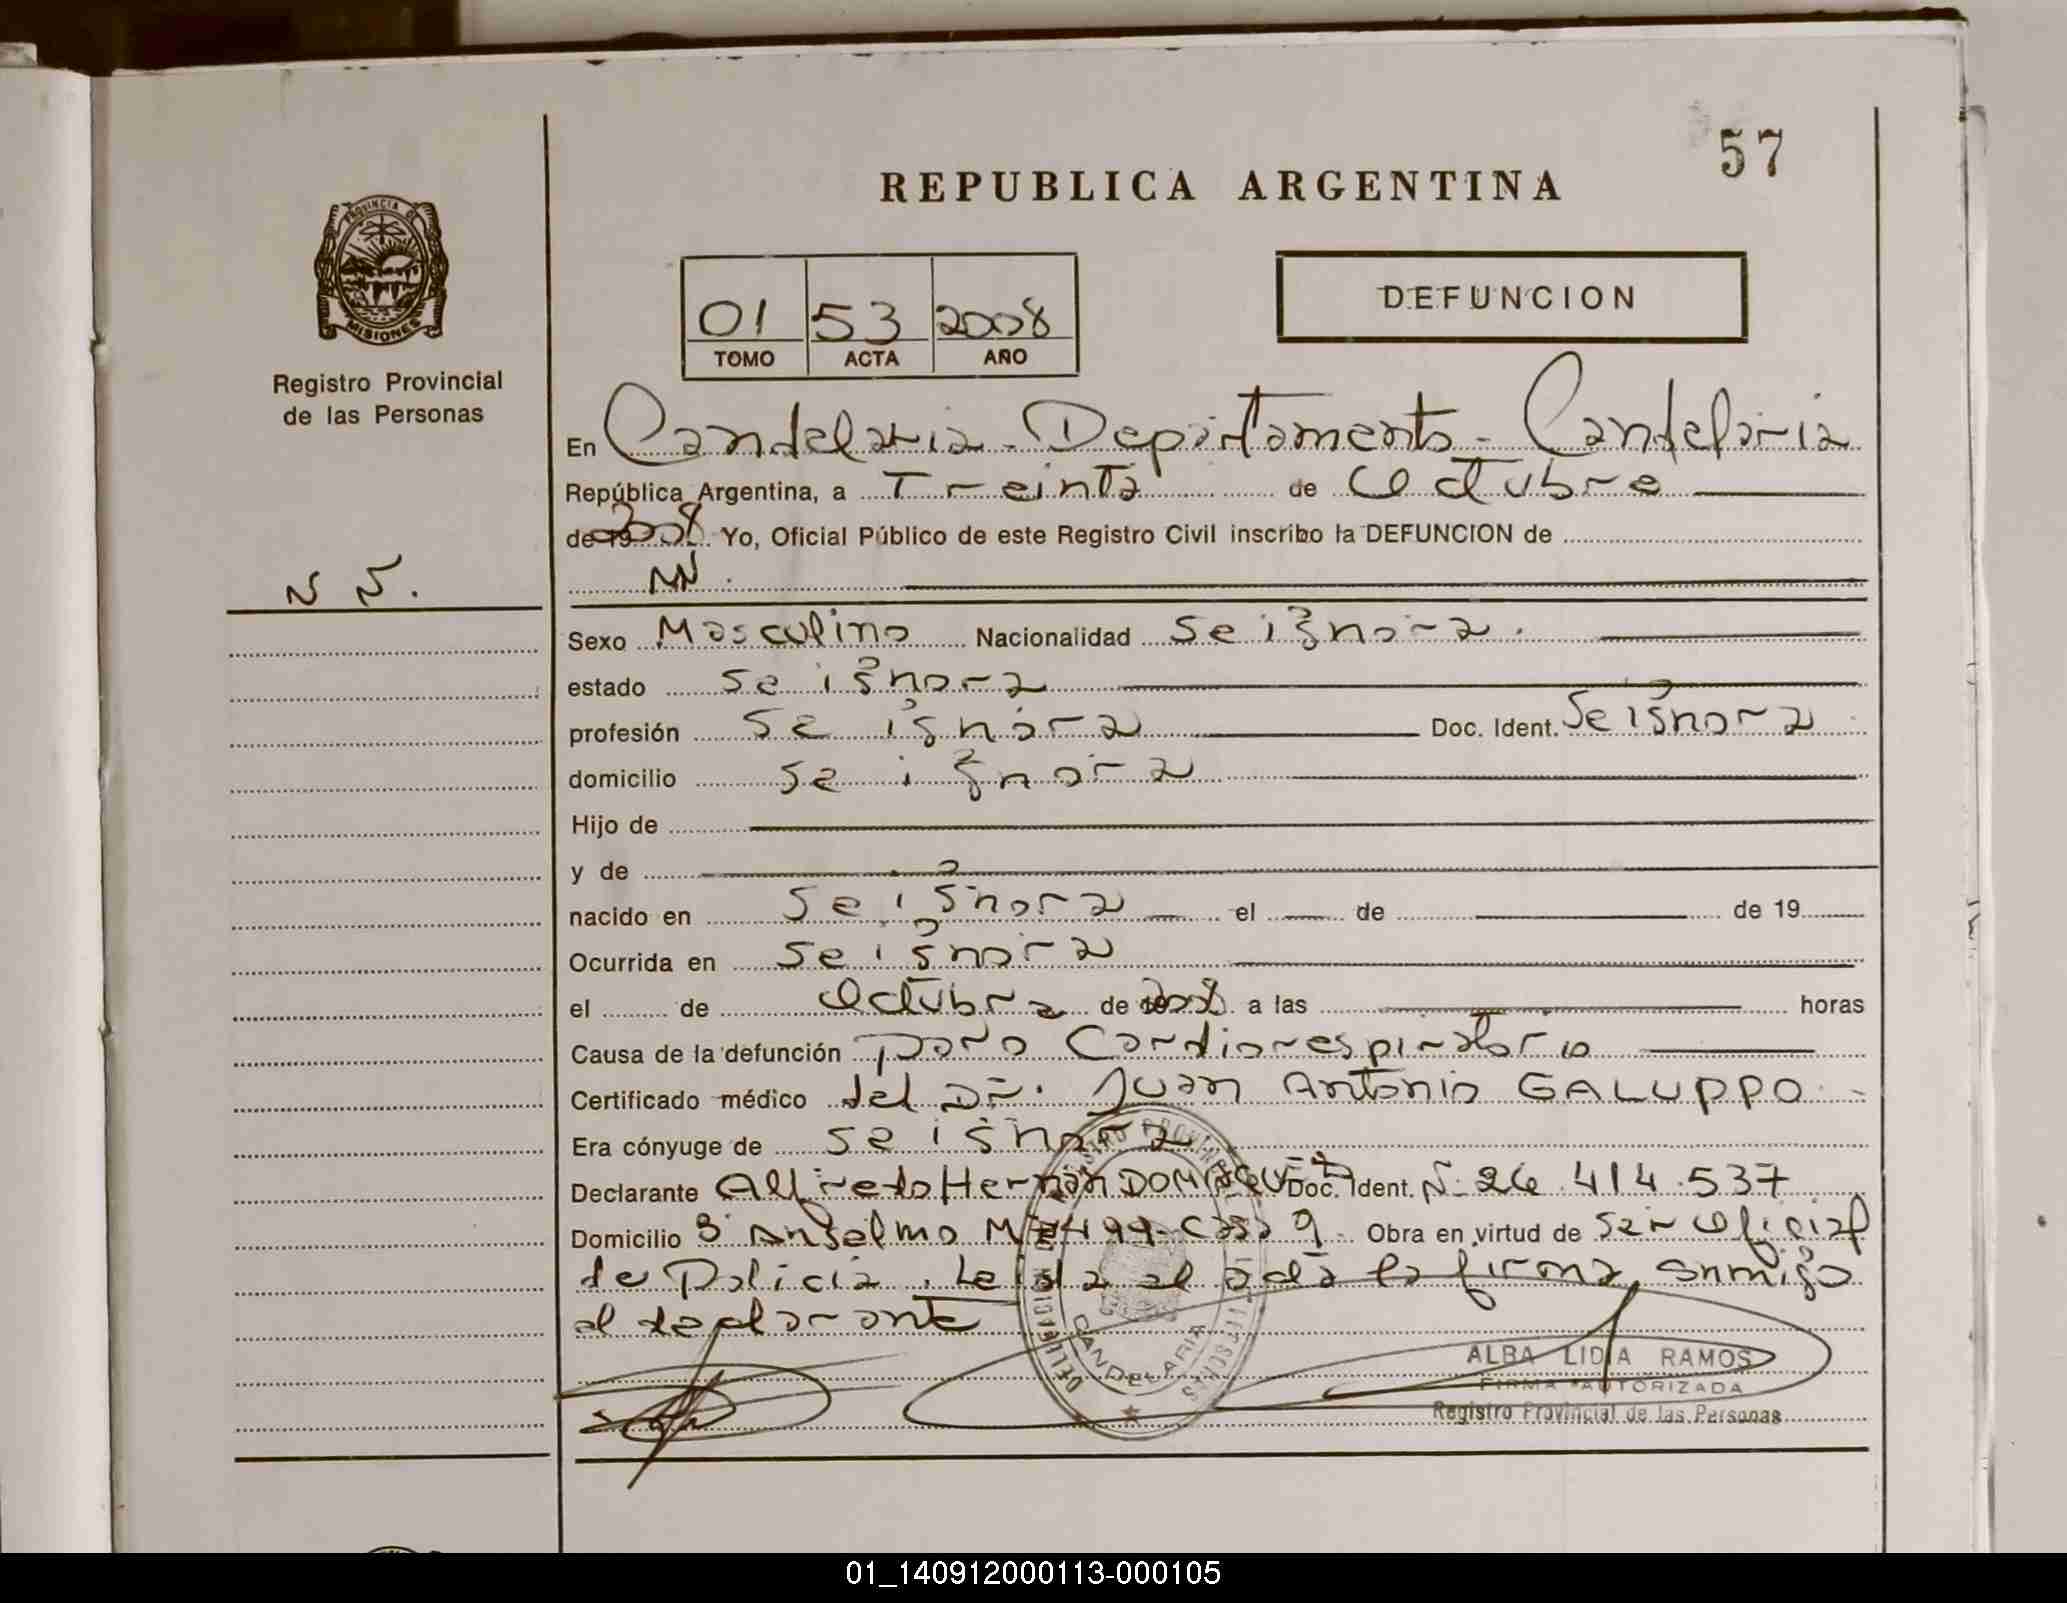 57
REPUBLICA ARGENTINA
PROVINCIA DE
MISIONES
Registro Provincial
de las Personas
01 53 2008
TOMO ACTA AÑO
DEFUNCION
En Candelaria - Departamento - Candelaria
República Argentina, a Treinta de Octubre
de 19 2008 Yo, Oficial Público de este Registro Civil inscribo la DEFUNCION de
N N.
NN.
Sexo Masculino Nacionalidad se ignora.
estado se ignora
profesión se ignora Doc. Ident. Se ignora
domicilio se ignora
Hijo de
y de
nacido en se ignora el de de 19
Ocurrida en se ignora
el de Octubre de 2008 a las horas
Causa de la defunción paro Cardiorespiratorio
Certificado médico del Dr. Juan Antonio GALUPPO -
Era cónyuge de se ignora
Declarante Alfredo Hernán Doc. Ident. N- 26.414.537
Domicilio Bº Anselmo Casa 9 - Obra en virtud de Ser Oficial
de Policia. Leida el acta la firma conmigo
el declarante
CANDELARIA
ALBA LIDIA RAMOS
FIRMA AUTORIZADA
Registro Provincial de las Personas
01_140912000113-000105